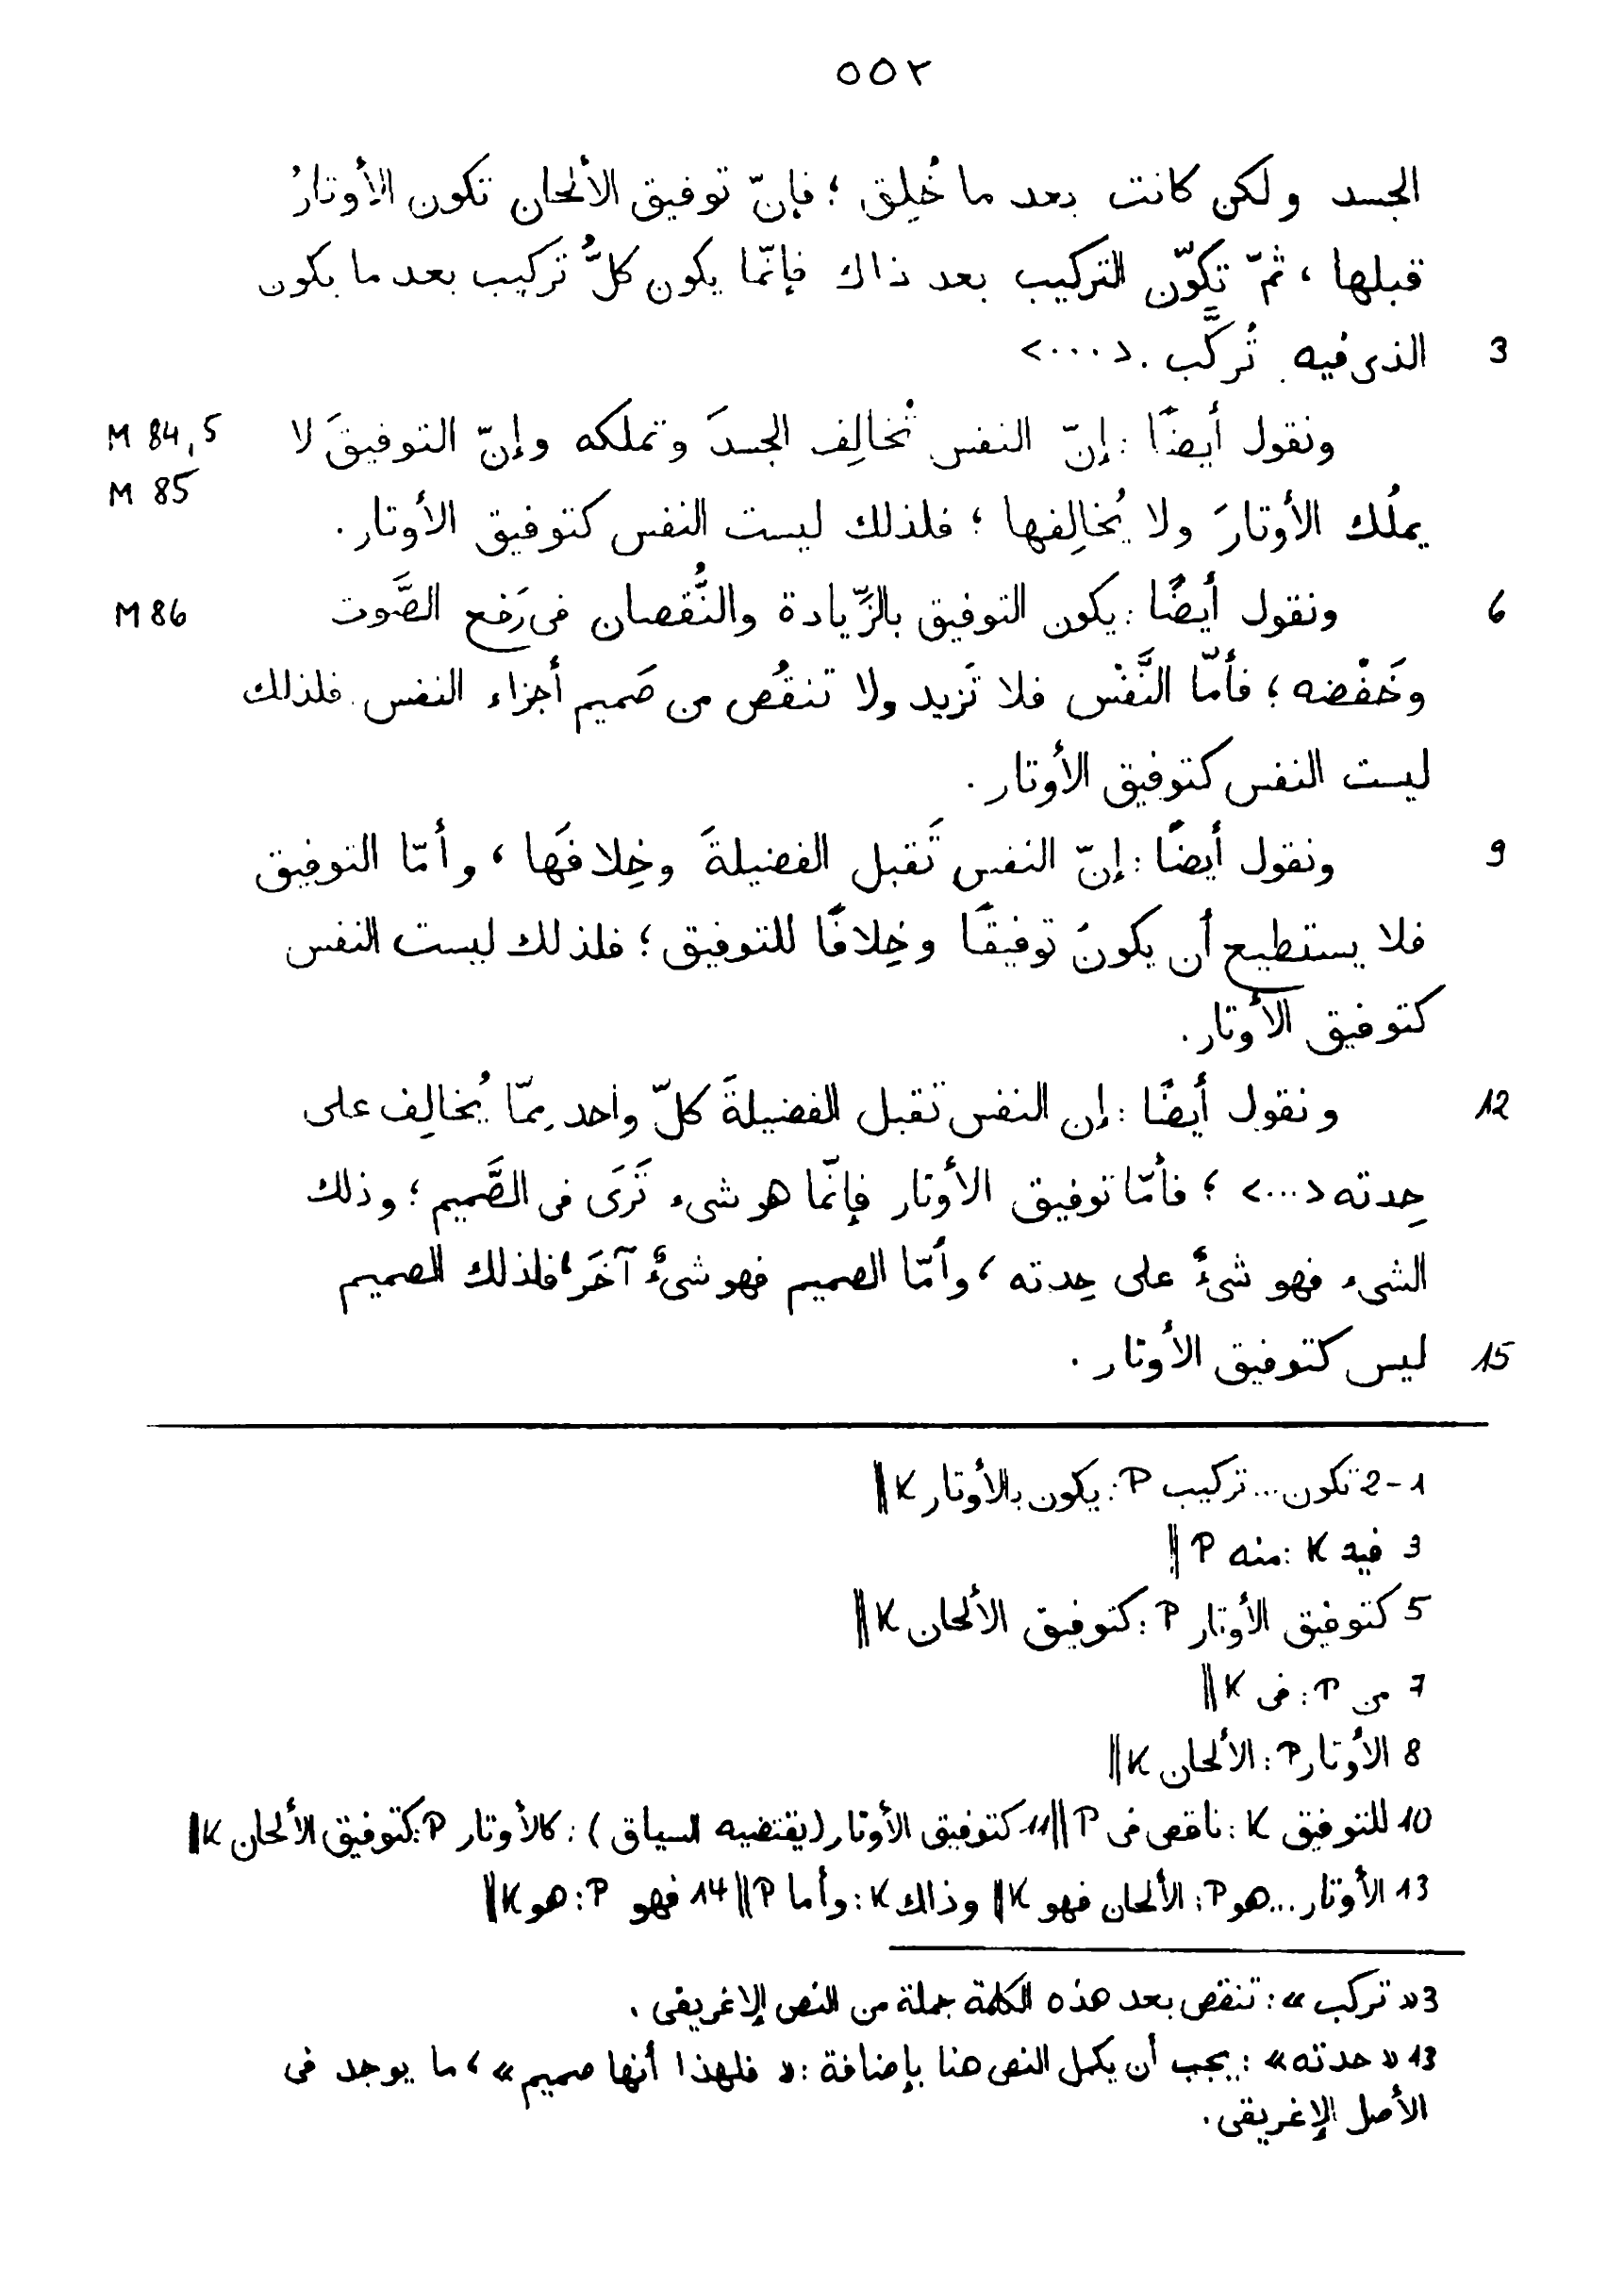 ٥٥٢
الجسد ولكن كانت بعد ما خُلِق ؛ فإنّ توفيق الألحان تكون الأوتارُ
قبلها ، ثمّ تكوّن التركيب بعد ذاك فإنّما يكون كلُّ تركيب بعد ما يكون
3 الذى فيه تُركَّب . <...>
M 84,5 ونقول أيضًا : إنّ النفس تُخالِف الجسدَ وتملكه وإنّ التوفيقَ لا
M 85 يملُك الأوتارَ ولا يُخالِفها ؛ فلذلك ليست النفس كتوفيق الأوتار .
6 ونقول أيضًا : يكون التوفيق بالزِّيادة والنُّقصان فى رَفع الصَّوت M 86
وخَفْضه ؛ فأمّا النَّفْس فلا تَزيد ولا تنقُص من صَميم أجزاء النفس . فلذلك
ليست النفس كتوفيق الأوتار .
9 ونقول أيضًا : إنّ النفس تَقبل الفضيلةَ وخِلافَها ، وأمّا التوفيق
فلا يستطيع أن يكونَ توفيقًا وخِلافًا للتوفيق ؛ فلذلك ليست النفس
كتوفيق الأوتار .
12 ونقول أيضًا : إن النفس تقبل الفضيلةَ كلّ واحد ممّا يُخالِف على
حِدته <...> ؛ فأمّا توفيق الأوتار فإنّما هو شىء تَرَى فى الصَّميم ؛ وذلك
الشىء فهو شىءٌ على حِدته ، وأمّا الصميم فهو شىءٌ آخَر ، فلذلك الصميم
15 ليس كتوفيق الأوتار .
1-2 تكون ... تركيب P : يكون بالأوتار K ||
3 فيه K : منه P ||
5 كتوفيق الأوتار P : كتوفيق الألحان K ||
7 من P : فى K ||
8 الأوتار P : الألحان K ||
10 للتوفيق K : ناقص فى P || 11 كتوفيق الأوتار (يقتضيه السياق) : كالأوتار P : كتوفيق الألحان K ||
13 الأوتار ... هو P : الألحان فهو K || وذاك K : وأما P || 14 فهو P : هو K ||
3 « تركب » : تنقص بعد هذه الكلمة جملة من النص الإغريقى .
13 « حدته » : يجب أن يكمل النص هنا بإضافة : « فلهذا أنها صميم » ، ما يوجد فى
الأصل الإغريقى .